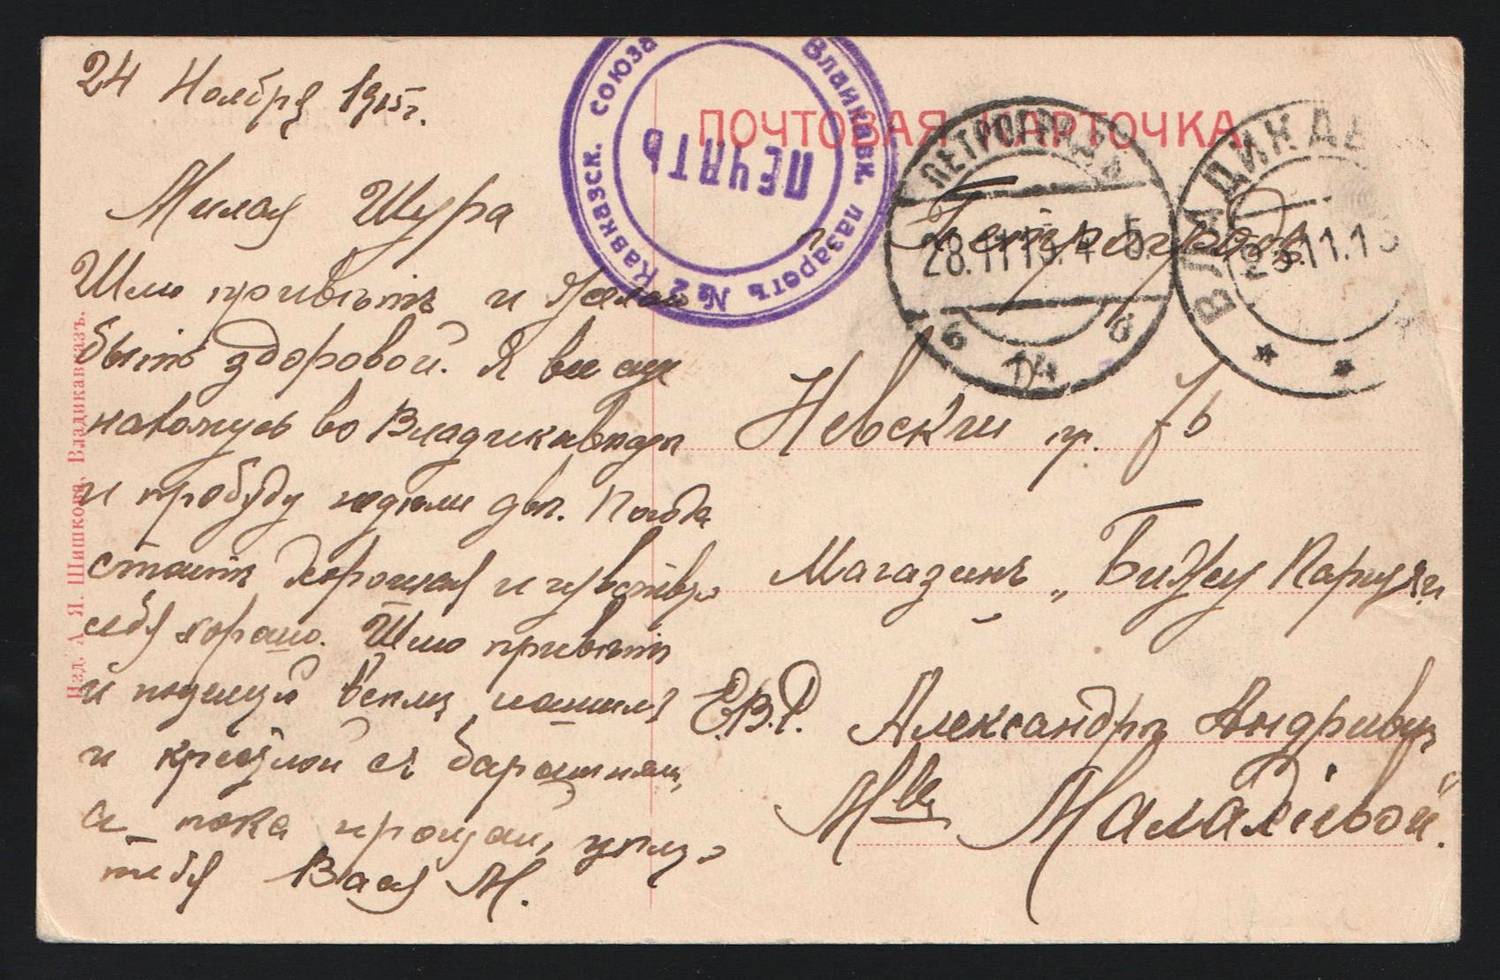 24 Ноября 1915 г.
Милая Шура
Шлю привѣтъ и желаю
быть здоровой. Я все еще
нахожусь во Владикавказѣ
и пробуду недѣли двѣ. Погода
стоитъ хорошая и чувствую
себя хорошо. Шлю привѣтъ
и всѣмъ нашимъ
и съ барышнями
а пока прощай, цѣлую
тебя Вася М.
Изд. А. Я. Шишкова, Владикавказъ.
союза
Владикавк. лазаретъ № 2 Кавказск.
ПЕЧАТЬ
ПОЧТОВАЯ КАРТОЧКА
ПЕТРОГРАДЪ
28.11.15.4
б 14 б
ВЛАДИКАВ
11.15
Петроградъ
Невскій пр.
Магазинъ „Бижу Паризьи
Е.В.Р. Александрѣ Андреевнѣ
М-ве